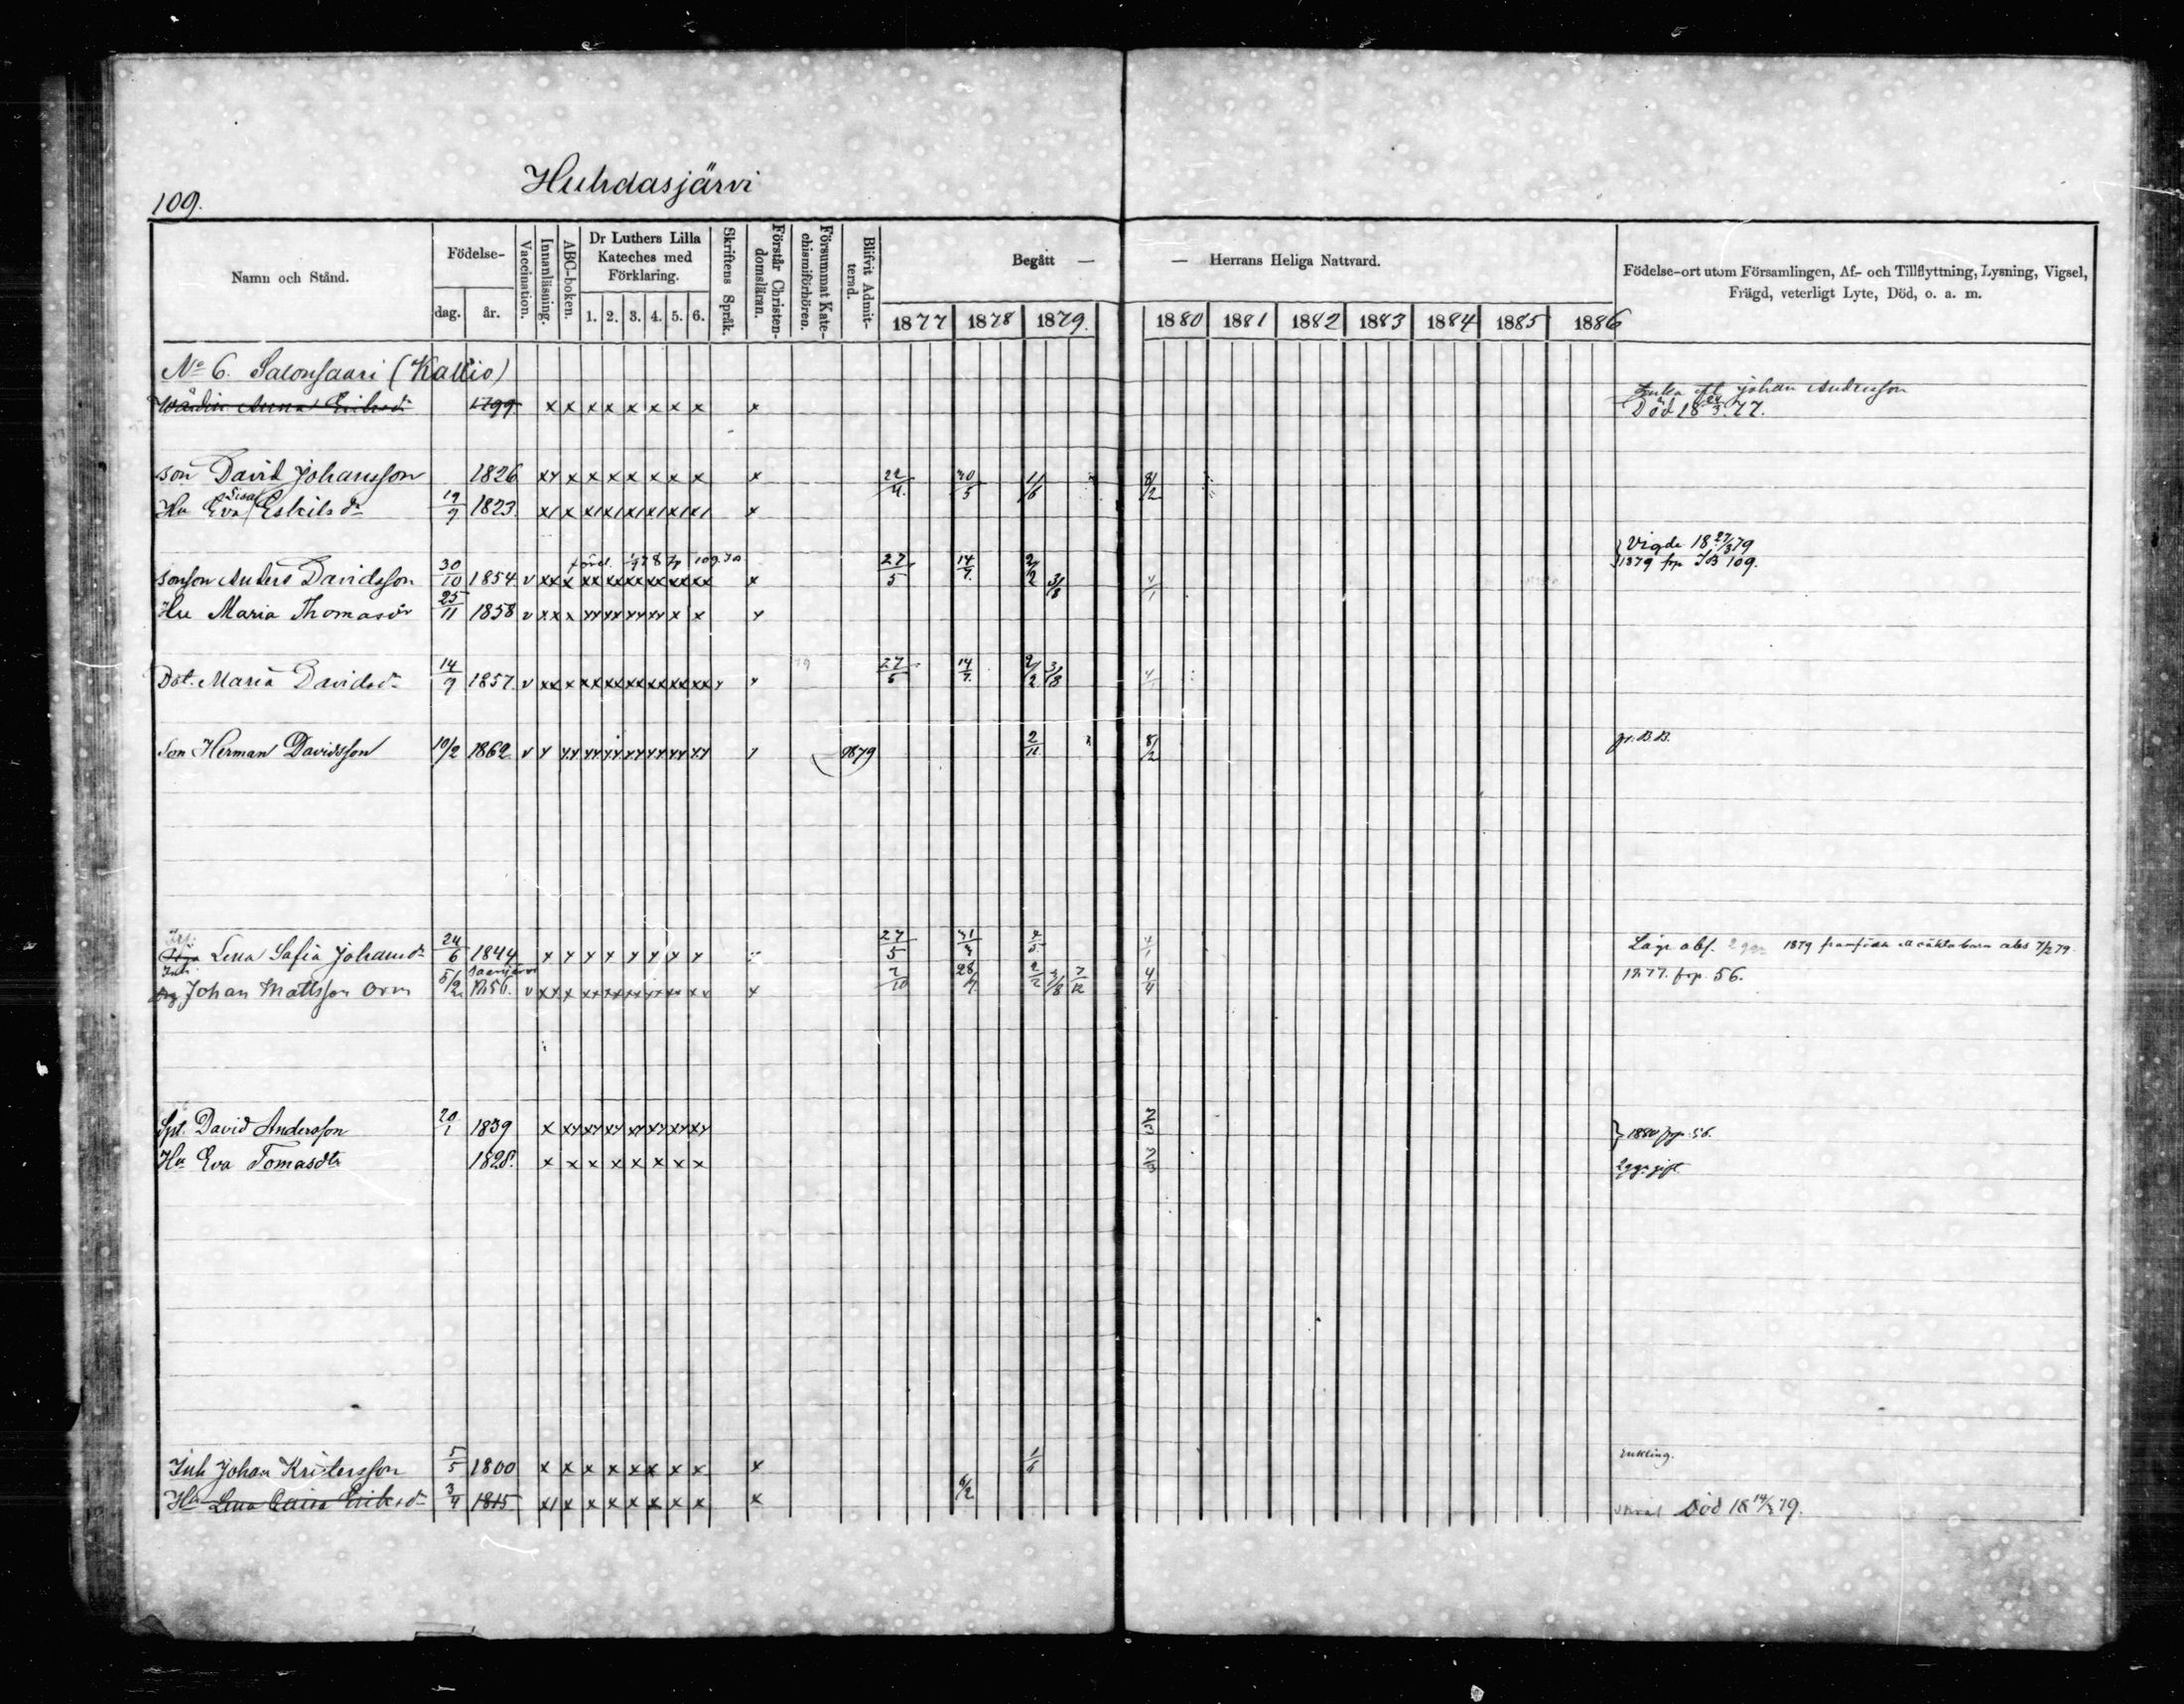 Huhdasjärvi
109.
Namn och Stånd.
Födelse-
dag. år.
Vaccination.
Innanläsning.
ABC-boken.
Dr Luthers Lilla
Kateches med
Förklaring.
1. 2. 3. 4. 5. 6.
Skriftens Språk.
Förstår Christen-
domsläran.
Försummat Kate-
chismiförhören.
Blifvit Admit-
terad.
Begått —
— Herrans Heliga Nattvard.
1877 1878 1879. 1880 1881 1882 1883 1884 1885 1886
Födelse-ort utom Församlingen, Af- och Tillflyttning, Lysning, Vigsel,
Frägd, veterligt Lyte, Död, o. a. m.
No 6. Salonsaari (Kallio)
Anna Eriksdr 1799 x x x x x x x x x Johan Andersson
Död 18 77.
son David Johansson 1826 xx x x x x x x x x 22/4 30/5 1/6 8/2
Hu Eva Lisa Eskilsdr 19/9 1823 x
109
sonson Anders Davidsson 30/10 1854 v xx x xx xx xx xx xx xx x 27/5 14/7 2/2 3/8 4/1 Vigde 18 27/3 79
1879 frp JB 109.
Hu Maria Thomasdr 25/11 1858 v xx x xx xx xx xx x x x
Dot. Maria Davidsdr 14/9 1857 v xx x xx xx xx xx xx xx x 27/5 14/7 2/2 3/8 4/1
Son Herman Davidsson 10/2 1862 v x xx xx xx xx xx xx xx x 1879 2/11 8/2
Lena Safia Johansdr 24/6 1844 x x x x x x x x 27/5 4/1 Läg. abs. 2 ggr 1879 framfödt oäkta barn abs 7/12 79.
Inh. Johan Mattsson Orn 5/2 1856. v xx x xx xx xx xx xx xx x 7/10 28/7 2/2 3/8 7/12 4/4 1877. frp. 56.
Spt. David Andersson 20/1 1839 x xx xx xx xx xx xx xx 1880 frp. 56.
Hu Eva Tomasdtr 1828. x x x x x x x x 2 ggr gift
Inh Johan Kristersson 5/5 1800 x x x x x x x x x 1/6 Enkling.
Hu Lena Caisa Eriksdr 3/4 1815 x x x x x x x x 6/2 Död 18 79.